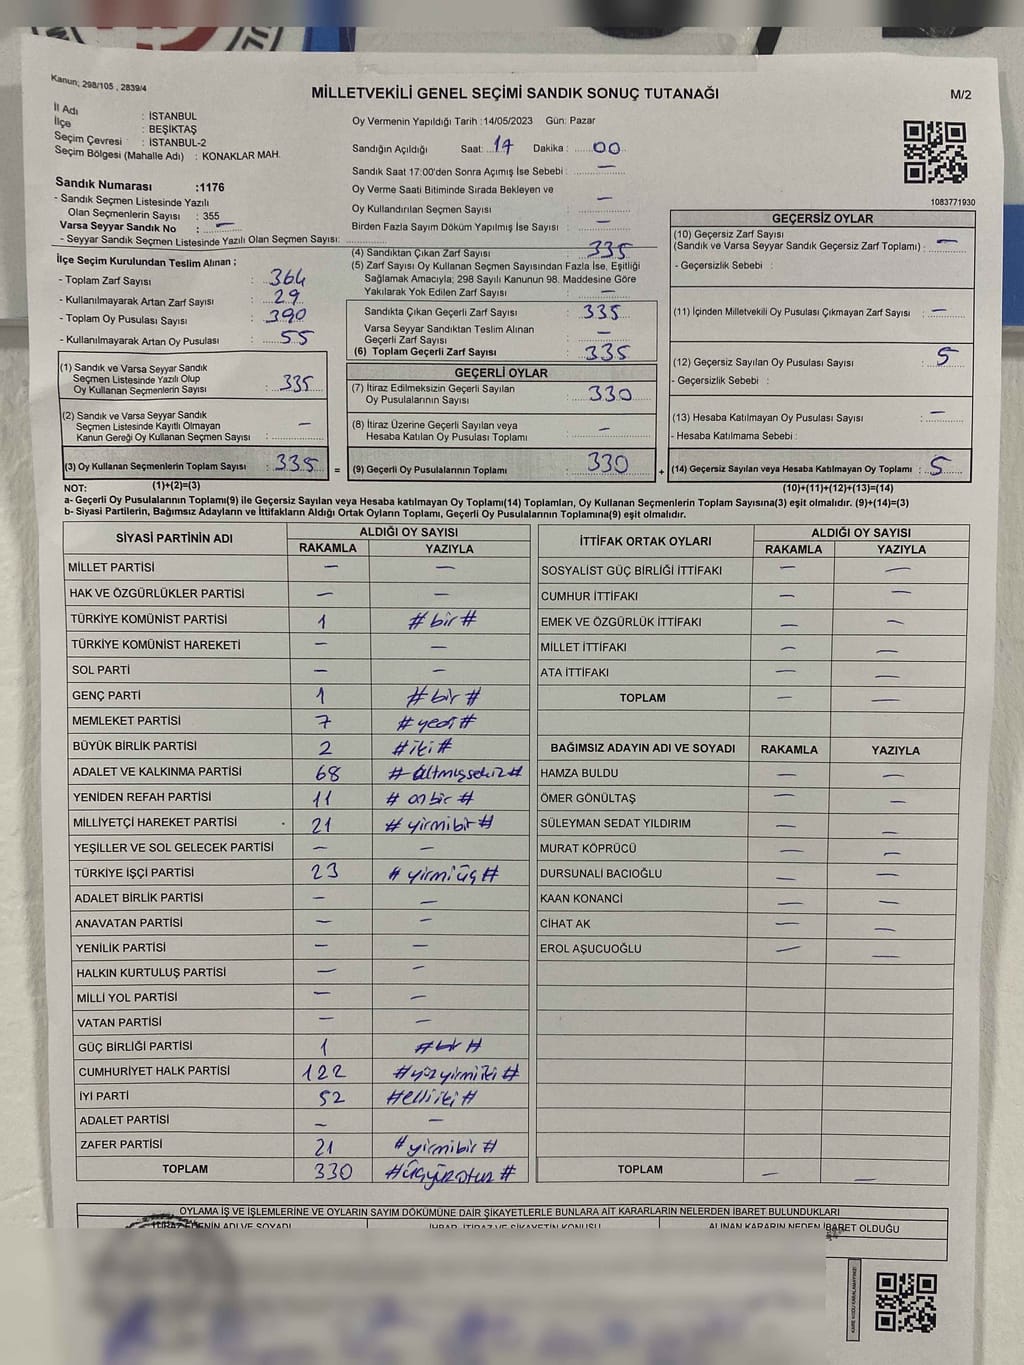 Kanun; 298/105 , 2839/4
MİLLETVEKİLİ GENEL SEÇİMİ SANDIK SONUÇ TUTANAĞI
M/2
İl Adı : İSTANBUL
İlçe : BEŞİKTAŞ
Seçim Çevresi : İSTANBUL-2
Seçim Bölgesi (Mahalle Adı) : KONAKLAR MAH.
Sandık Numarası :1176
- Sandık Seçmen Listesinde Yazılı
Olan Seçmenlerin Sayısı : 355
Varsa Seyyar Sandık No : —
- Seyyar Sandık Seçmen Listesinde Yazılı Olan Seçmen Sayısı:
İlçe Seçim Kurulundan Teslim Alınan ;
- Toplam Zarf Sayısı : 364
- Kullanılmayarak Artan Zarf Sayısı : 29
- Toplam Oy Pusulası Sayısı : 390
- Kullanılmayarak Artan Oy Pusulası : 55
(1) Sandık ve Varsa Seyyar Sandık
Seçmen Listesinde Yazılı Olup
Oy Kullanan Seçmenlerin Sayısı : 335
(2) Sandık ve Varsa Seyyar Sandık
Seçmen Listesinde Kayıtlı Olmayan
Kanun Gereği Oy Kullanan Seçmen Sayısı : —
(3) Oy Kullanan Seçmenlerin Toplam Sayısı : 335 =
(1)+(2)=(3)
Oy Vermenin Yapıldığı Tarih :14/05/2023 Gün: Pazar
Sandığın Açıldığı Saat: 17 Dakika : 00
Sandık Saat 17:00'den Sonra Açılmış İse Sebebi : —
Oy Verme Saati Bitiminde Sırada Bekleyen ve
Oy Kullandırılan Seçmen Sayısı : —
Birden Fazla Sayım Döküm Yapılmış İse Sayısı : —
(4) Sandıktan Çıkan Zarf Sayısı : 335
(5) Zarf Sayısı Oy Kullanan Seçmen Sayısından Fazla İse, Eşitliği
Sağlamak Amacıyla; 298 Sayılı Kanunun 98. Maddesine Göre
Yakılarak Yok Edilen Zarf Sayısı : —
Sandıkta Çıkan Geçerli Zarf Sayısı : 335
Varsa Seyyar Sandıktan Teslim Alınan
Geçerli Zarf Sayısı : —
(6) Toplam Geçerli Zarf Sayısı : 335
GEÇERLİ OYLAR
(7) İtiraz Edilmeksizin Geçerli Sayılan
Oy Pusulalarının Sayısı : 330
(8) İtiraz Üzerine Geçerli Sayılan veya
Hesaba Katılan Oy Pusulası Toplamı : —
(9) Geçerli Oy Pusulalarının Toplamı : 330 +
1083771930
GEÇERSİZ OYLAR
(10) Geçersiz Zarf Sayısı
(Sandık ve Varsa Seyyar Sandık Geçersiz Zarf Toplamı) : —
- Geçersizlik Sebebi :
(11) İçinden Milletvekili Oy Pusulası Çıkmayan Zarf Sayısı : —
(12) Geçersiz Sayılan Oy Pusulası Sayısı : 5
- Geçersizlik Sebebi :
(13) Hesaba Katılmayan Oy Pusulası Sayısı : —
- Hesaba Katılmama Sebebi :
(14) Geçersiz Sayılan veya Hesaba Katılmayan Oy Toplamı : 5
(10)+(11)+(12)+(13)=(14)
NOT:
a- Geçerli Oy Pusulalarının Toplamı(9) ile Geçersiz Sayılan veya Hesaba katılmayan Oy Toplamı(14) Toplamları, Oy Kullanan Seçmenlerin Toplam Sayısına(3) eşit olmalıdır. (9)+(14)=(3)
b- Siyasi Partilerin, Bağımsız Adayların ve İttifakların Aldığı Ortak Oyların Toplamı, Geçerli Oy Pusulalarının Toplamına(9) eşit olmalıdır.
SİYASİ PARTİNİN ADI ALDIĞI OY SAYISI
RAKAMLA YAZIYLA
MİLLET PARTİSİ — —
HAK VE ÖZGÜRLÜKLER PARTİSİ — —
TÜRKİYE KOMÜNİST PARTİSİ 1 #bir#
TÜRKİYE KOMÜNİST HAREKETİ — —
SOL PARTİ — —
GENÇ PARTİ 1 #bir#
MEMLEKET PARTİSİ 7 #yedi#
BÜYÜK BİRLİK PARTİSİ 2 #iki#
ADALET VE KALKINMA PARTİSİ 68 #altmışsekiz#
YENİDEN REFAH PARTİSİ 11 #onbir#
MİLLİYETÇİ HAREKET PARTİSİ 21 #yirmibir#
YEŞİLLER VE SOL GELECEK PARTİSİ — —
TÜRKİYE İŞÇİ PARTİSİ 23 #yirmiüç#
ADALET BİRLİK PARTİSİ — —
ANAVATAN PARTİSİ — —
YENİLİK PARTİSİ — —
HALKIN KURTULUŞ PARTİSİ — —
MİLLİ YOL PARTİSİ — —
VATAN PARTİSİ — —
GÜÇ BİRLİĞİ PARTİSİ 1 #bir#
CUMHURİYET HALK PARTİSİ 122 #yüzyirmiiki#
İYİ PARTİ 52 #elliiki#
ADALET PARTİSİ — —
ZAFER PARTİSİ 21 #yirmibir#
TOPLAM 330 #üçyüzotuz#
İTTİFAK ORTAK OYLARI ALDIĞI OY SAYISI
RAKAMLA YAZIYLA
SOSYALİST GÜÇ BİRLİĞİ İTTİFAKI — —
CUMHUR İTTİFAKI — —
EMEK VE ÖZGÜRLÜK İTTİFAKI — —
MİLLET İTTİFAKI — —
ATA İTTİFAKI — —
TOPLAM — —
BAĞIMSIZ ADAYIN ADI VE SOYADI RAKAMLA YAZIYLA
HAMZA BULDU — —
ÖMER GÖNÜLTAŞ — —
SÜLEYMAN SEDAT YILDIRIM — —
MURAT KÖPRÜCÜ — —
DURSUNALİ BACIOĞLU — —
KAAN KONANCİ — —
CİHAT AK — —
EROL AŞUCUOĞLU — —
TOPLAM — —
OYLAMA İŞ VE İŞLEMLERİNE VE OYLARIN SAYIM DÖKÜMÜNE DAİR ŞİKAYETLERLE BUNLARA AİT KARARLARIN NELERDEN İBARET BULUNDUKLARI
İTİRAZ EDENİN ADI VE SOYADI İHBAR, İTİRAZ VE ŞİKAYETİN KONUSU ALINAN KARARIN NEDEN İBARET OLDUĞU